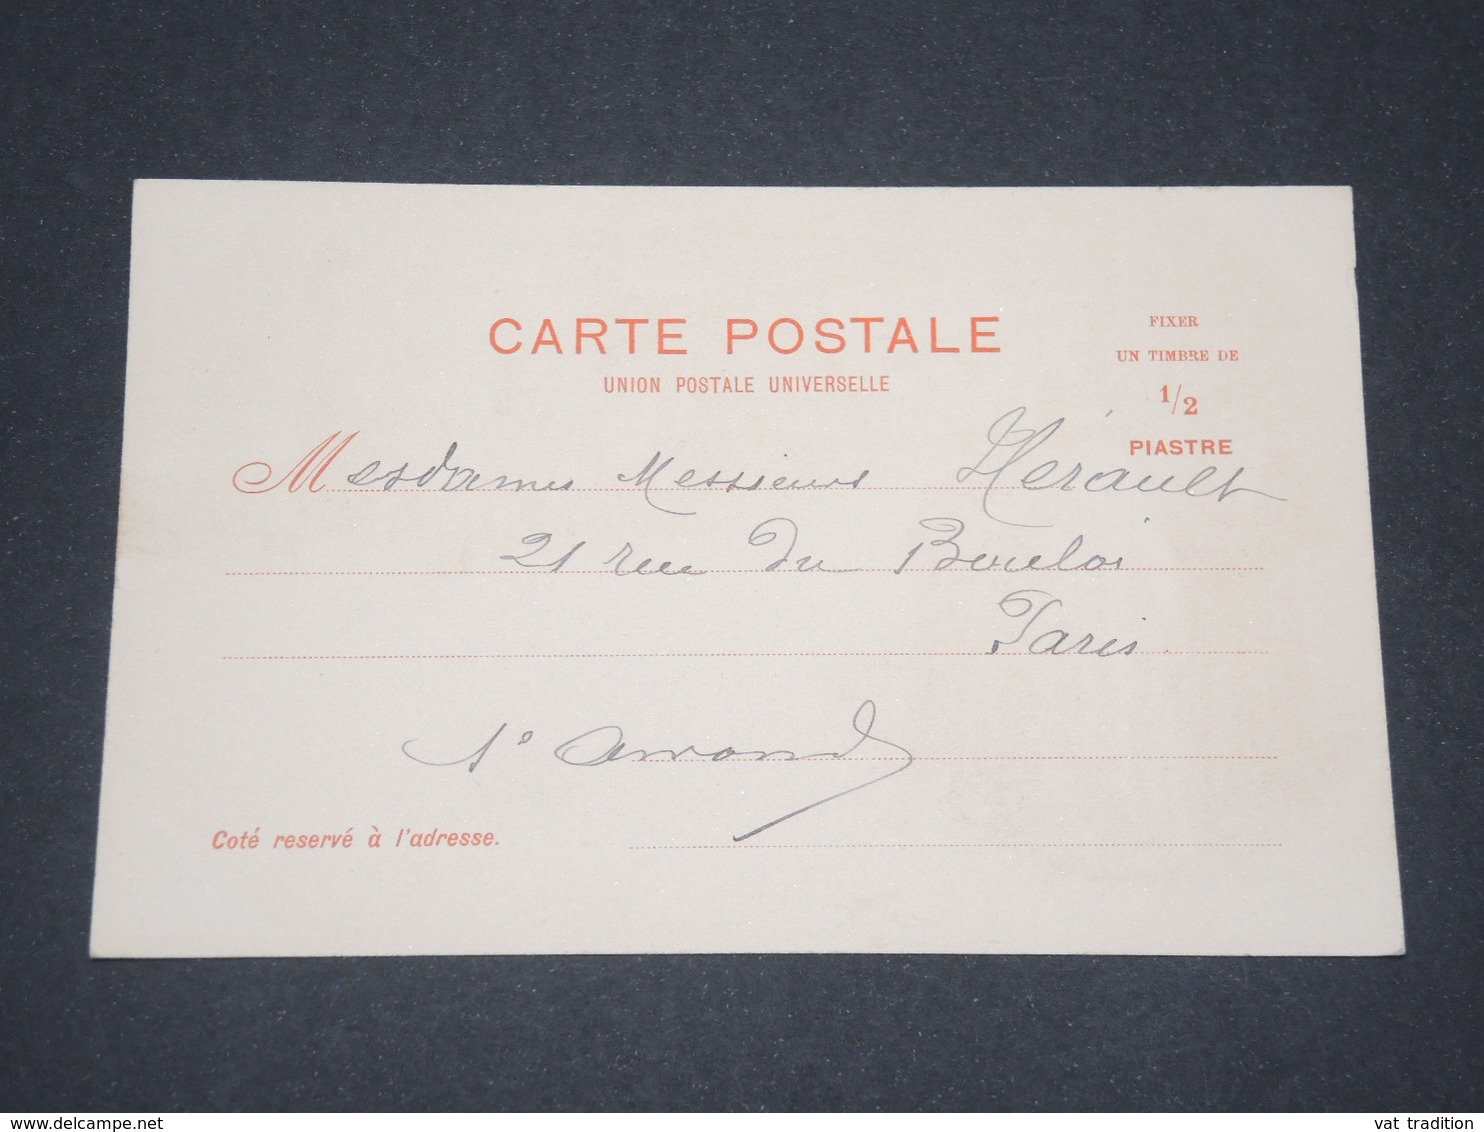 CARTE POSTALE
UNION POSTALE UNIVERSELLE
FIXER
UN TIMBRE DE
1/2
PIASTRE
Mesdames Messieurs Hérault
21 rue du Bouloi
Paris
Coté reservé à l'adresse.
www.delcampe.net
vat tradition